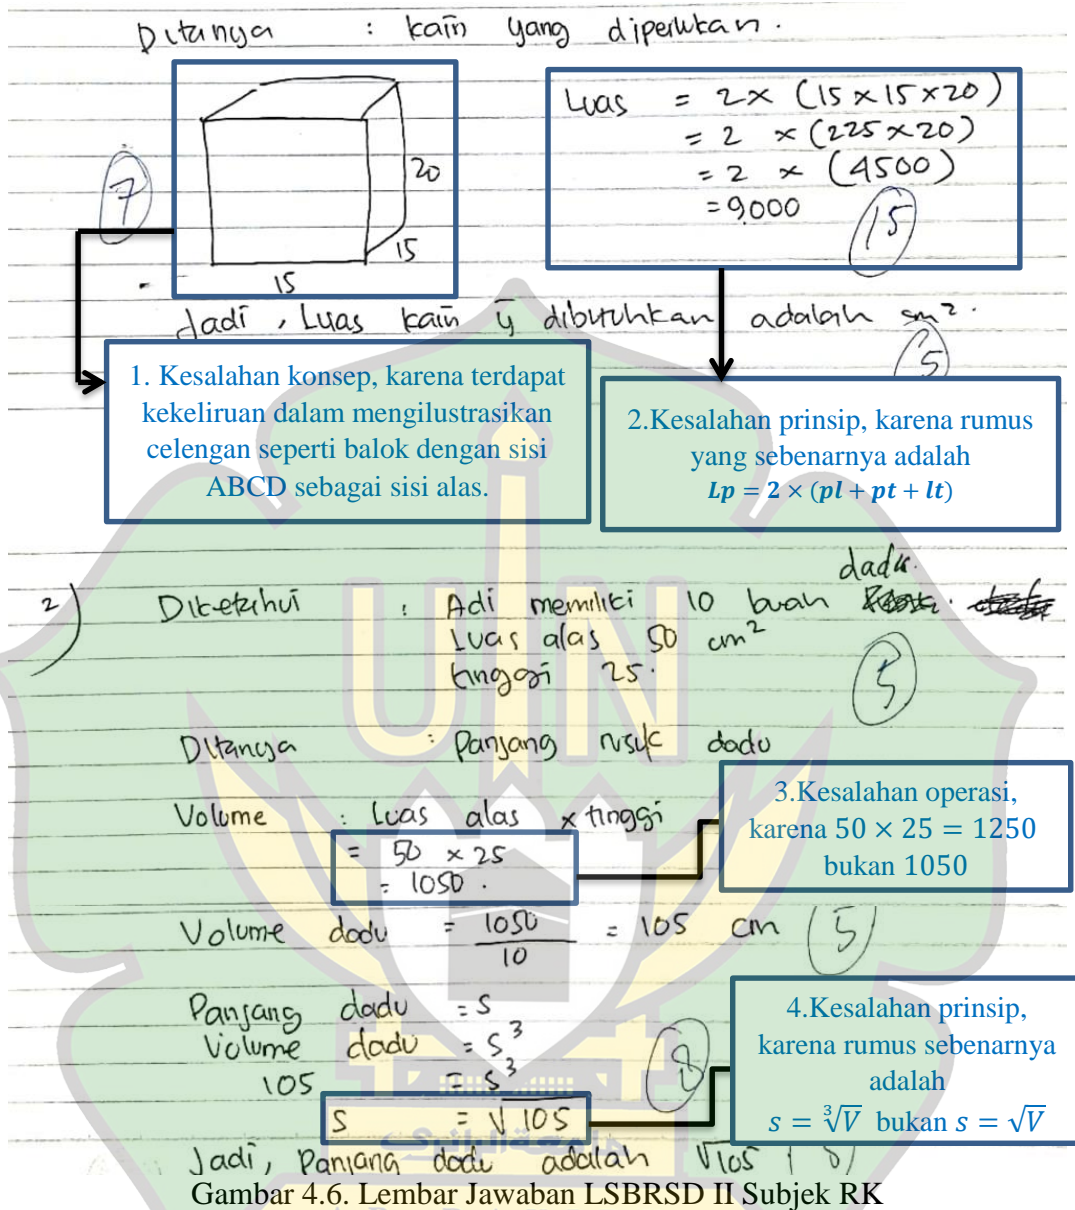 Ditanya : kain yang diperlukan.
Luas = 2× (15×15×20)
= 2 × (225×20)
= 2 × (4500)
= 9000
20
7
15
15
15
Jadi, Luas kain yg dibutuhkan adalah cm².
5
1. Kesalahan konsep, karena terdapat
kekeliruan dalam mengilustrasikan
celengan seperti balok dengan sisi
ABCD sebagai sisi alas.
2.Kesalahan prinsip, karena rumus
yang sebenarnya adalah
Lp = 2 × (pl + pt + lt)
2) Diketahui : Adi memiliki 10 buah dadu.
Luas alas 50 cm²
tinggi 25.
5
Ditanya : Panjang rusuk dadu
Volume : Luas alas × tinggi
= 50 × 25
= 1050.
3.Kesalahan operasi,
karena 50 × 25 = 1250
bukan 1050
Volume dadu = 1050/10 = 105 cm
5
Panjang dadu = s
Volume dadu = s³
105 = s³
8
s = √105
4.Kesalahan prinsip,
karena rumus sebenarnya
adalah
s = ∛V bukan s = √V
Jadi, Panjang dadu adalah √105
UIN
جامعة الرانري
Gambar 4.6. Lembar Jawaban LSBRSD II Subjek RK